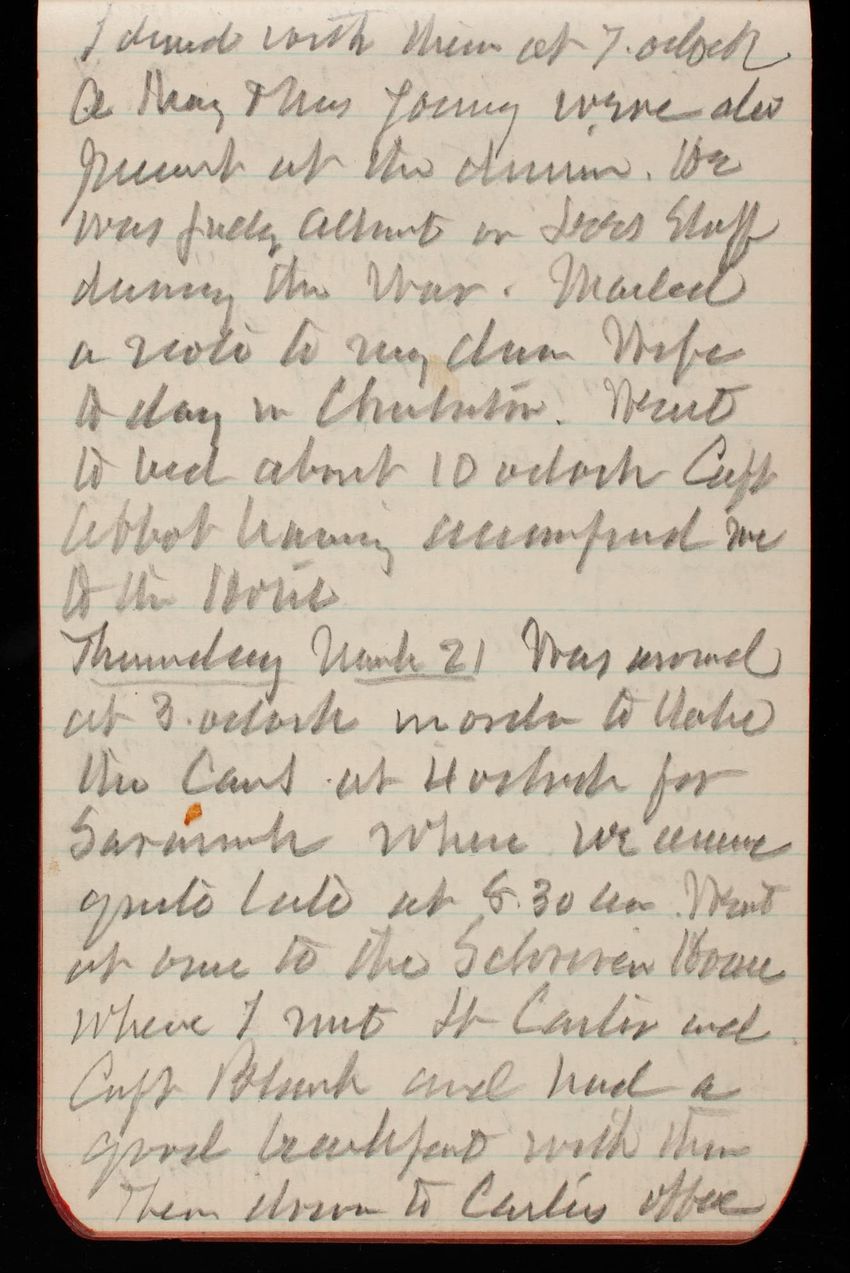 I dined with them at 7. oclock
A Maj & Mrs Young were also
present at the dinner. He
was Judg Advnt on Lees Staff
during the War. Mailed
a note to my dear Wife
to day in Charleston. Went
to bed about 10 oclock Capt
Abbot having accompnd me
to the Hotel
Thursday March 21 Was arousd
at 3. oclock in order to take
the Cars at 4 oclock for
Savannah where we arrive
quite late at 8.30 am. Went
at once to the Schreven House
where I met Lt Carter and
Capt and had a
good breakfast with them
Then down to Carters office